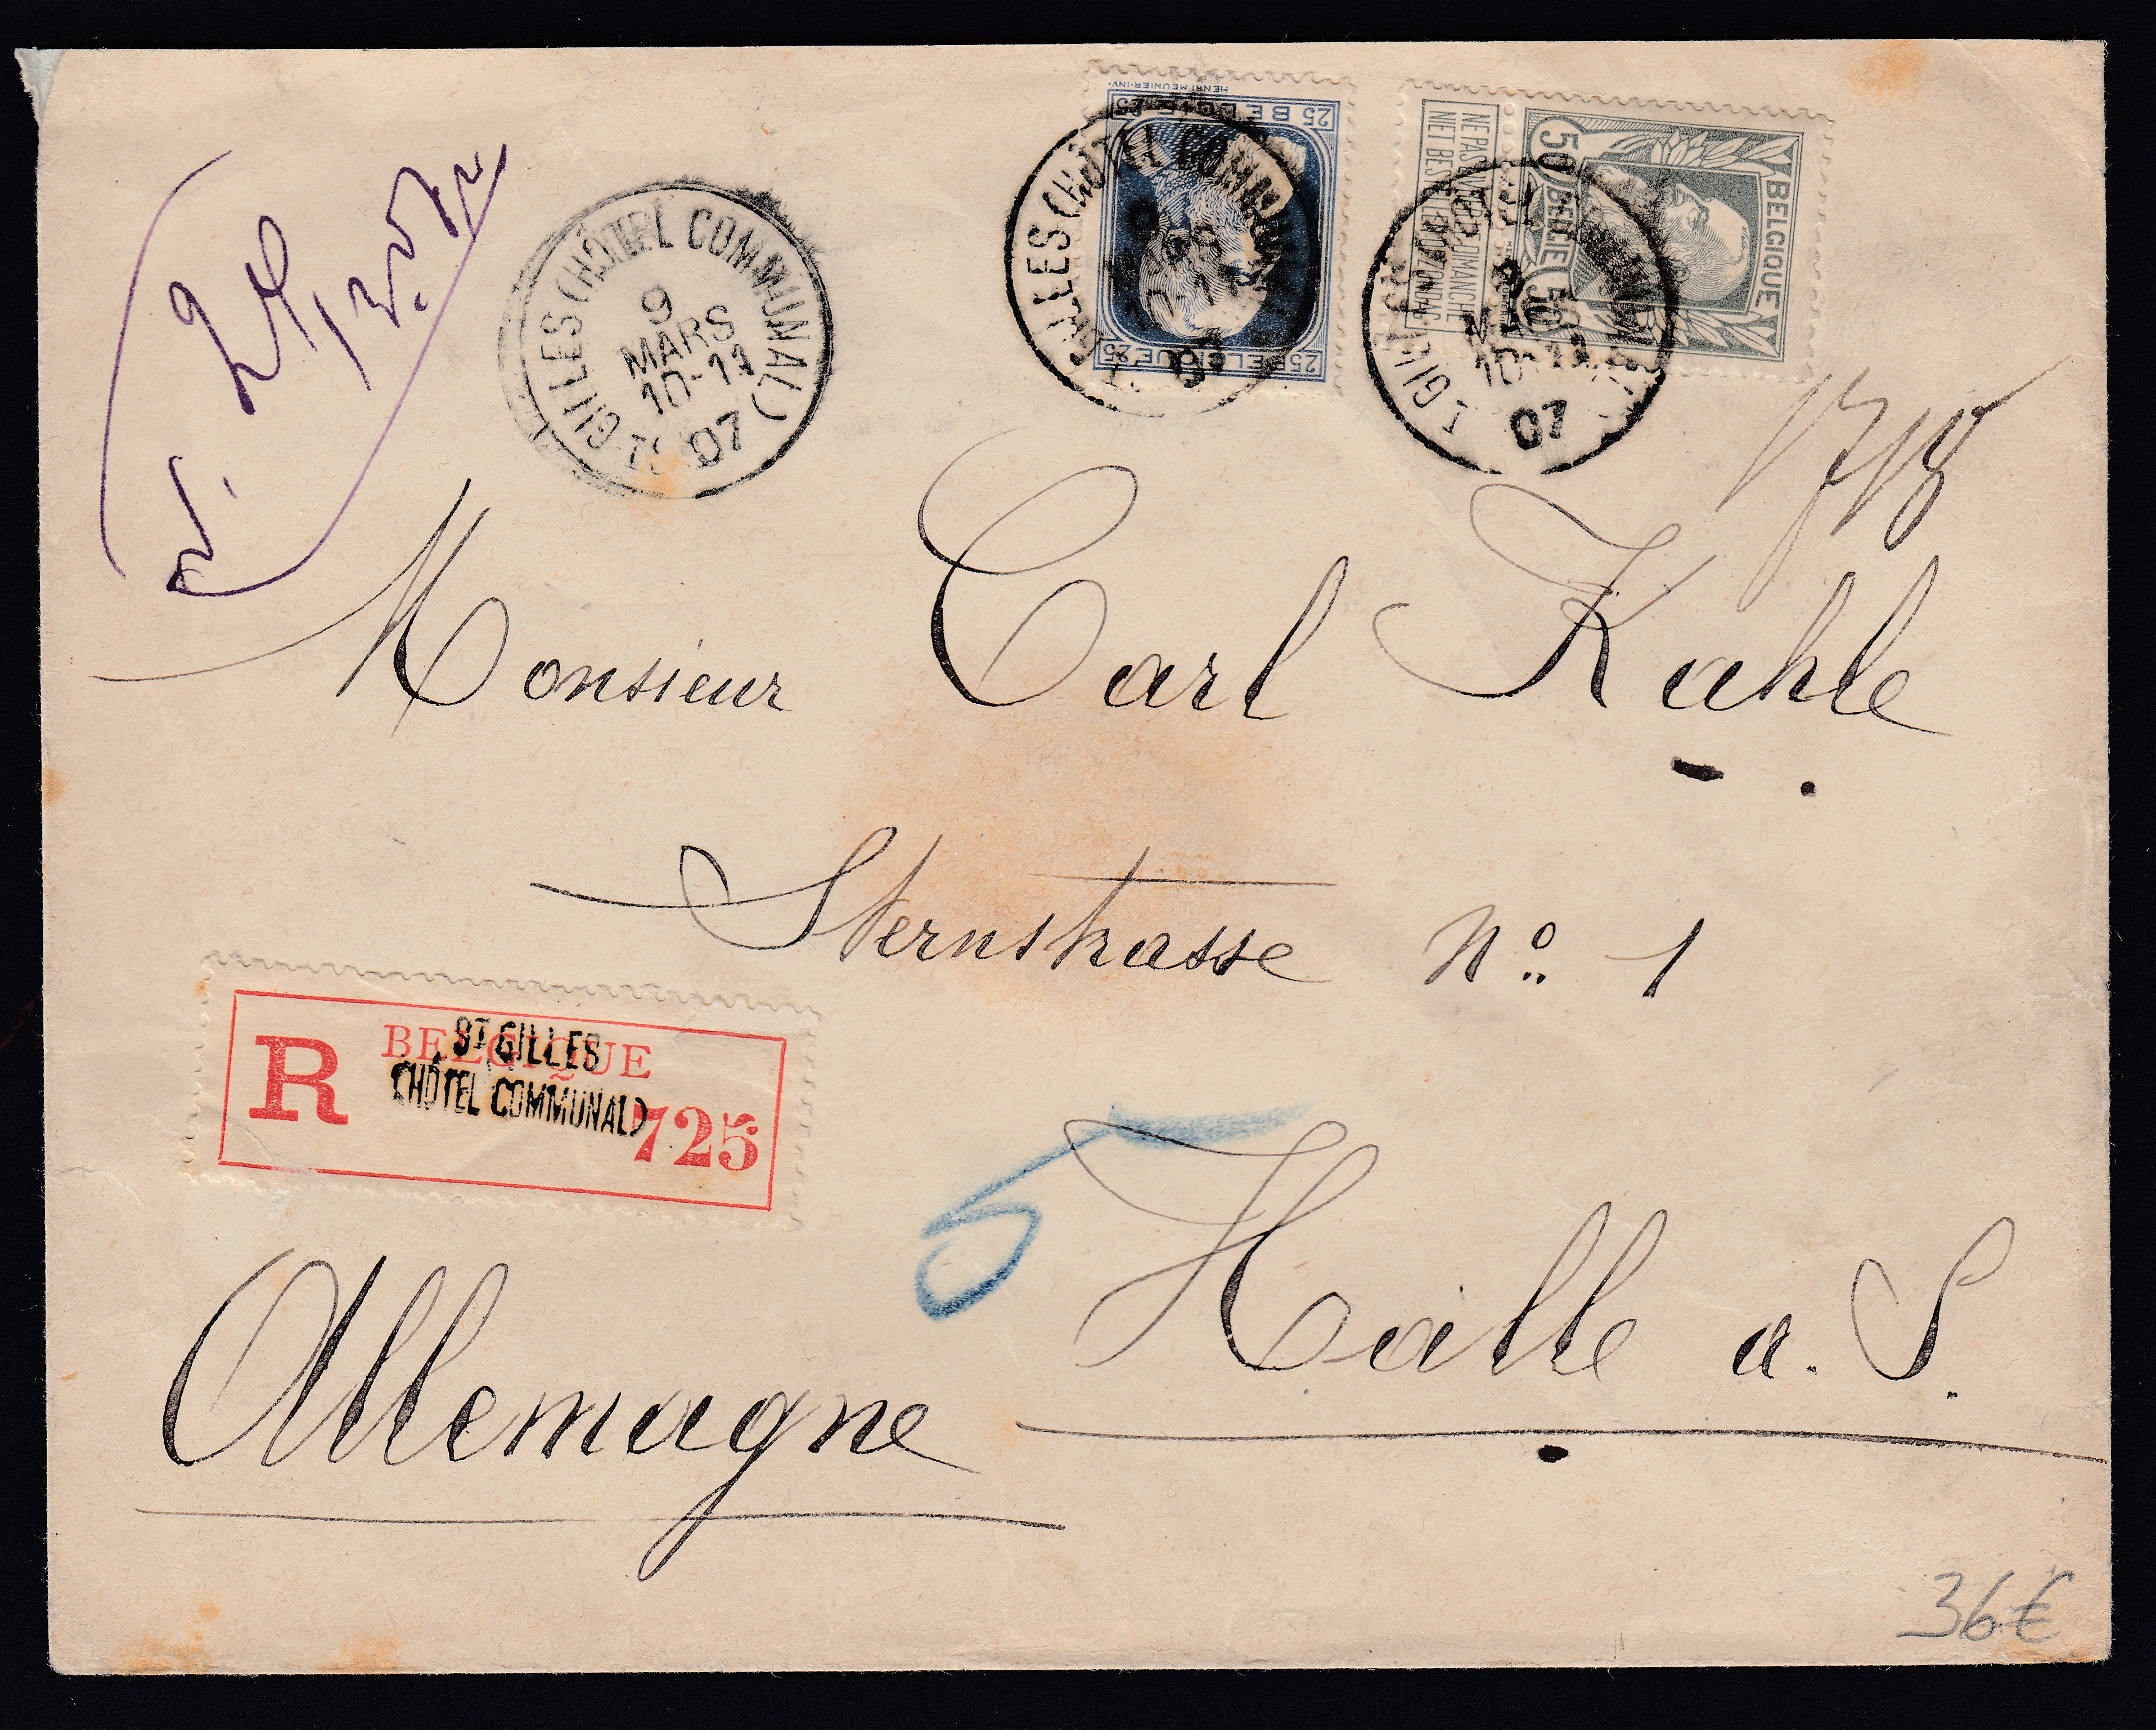 HENRI MEUNIER·INV·
25 BELGIE 25
25 BELGIQUE 25
NE PAS LIVRER LE DIMANCHE
NIET BESTELLEN OP ZONDAG
50 BELGIE 50
BELGIQUE
ST GILLES (HÔTEL COMMUNAL)
9
MARS
10-11
07
ST GILLES (HÔTEL COMMUNAL)
9
MARS
10-11
07
ST GILLES (HÔTEL COMMUNAL)
9
MARS
10-11
07
Monsieur Carl Kahle
Sternstrasse No. 1
R BELGIQUE
725
ST GILLES
(HÔTEL COMMUNAL)
Halle a. S.
Allemagne
36€